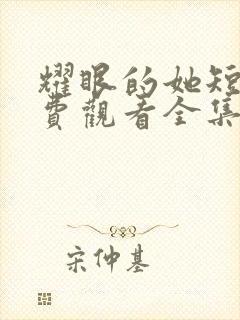 耀眼的她短
費觀看全集
宋仲基